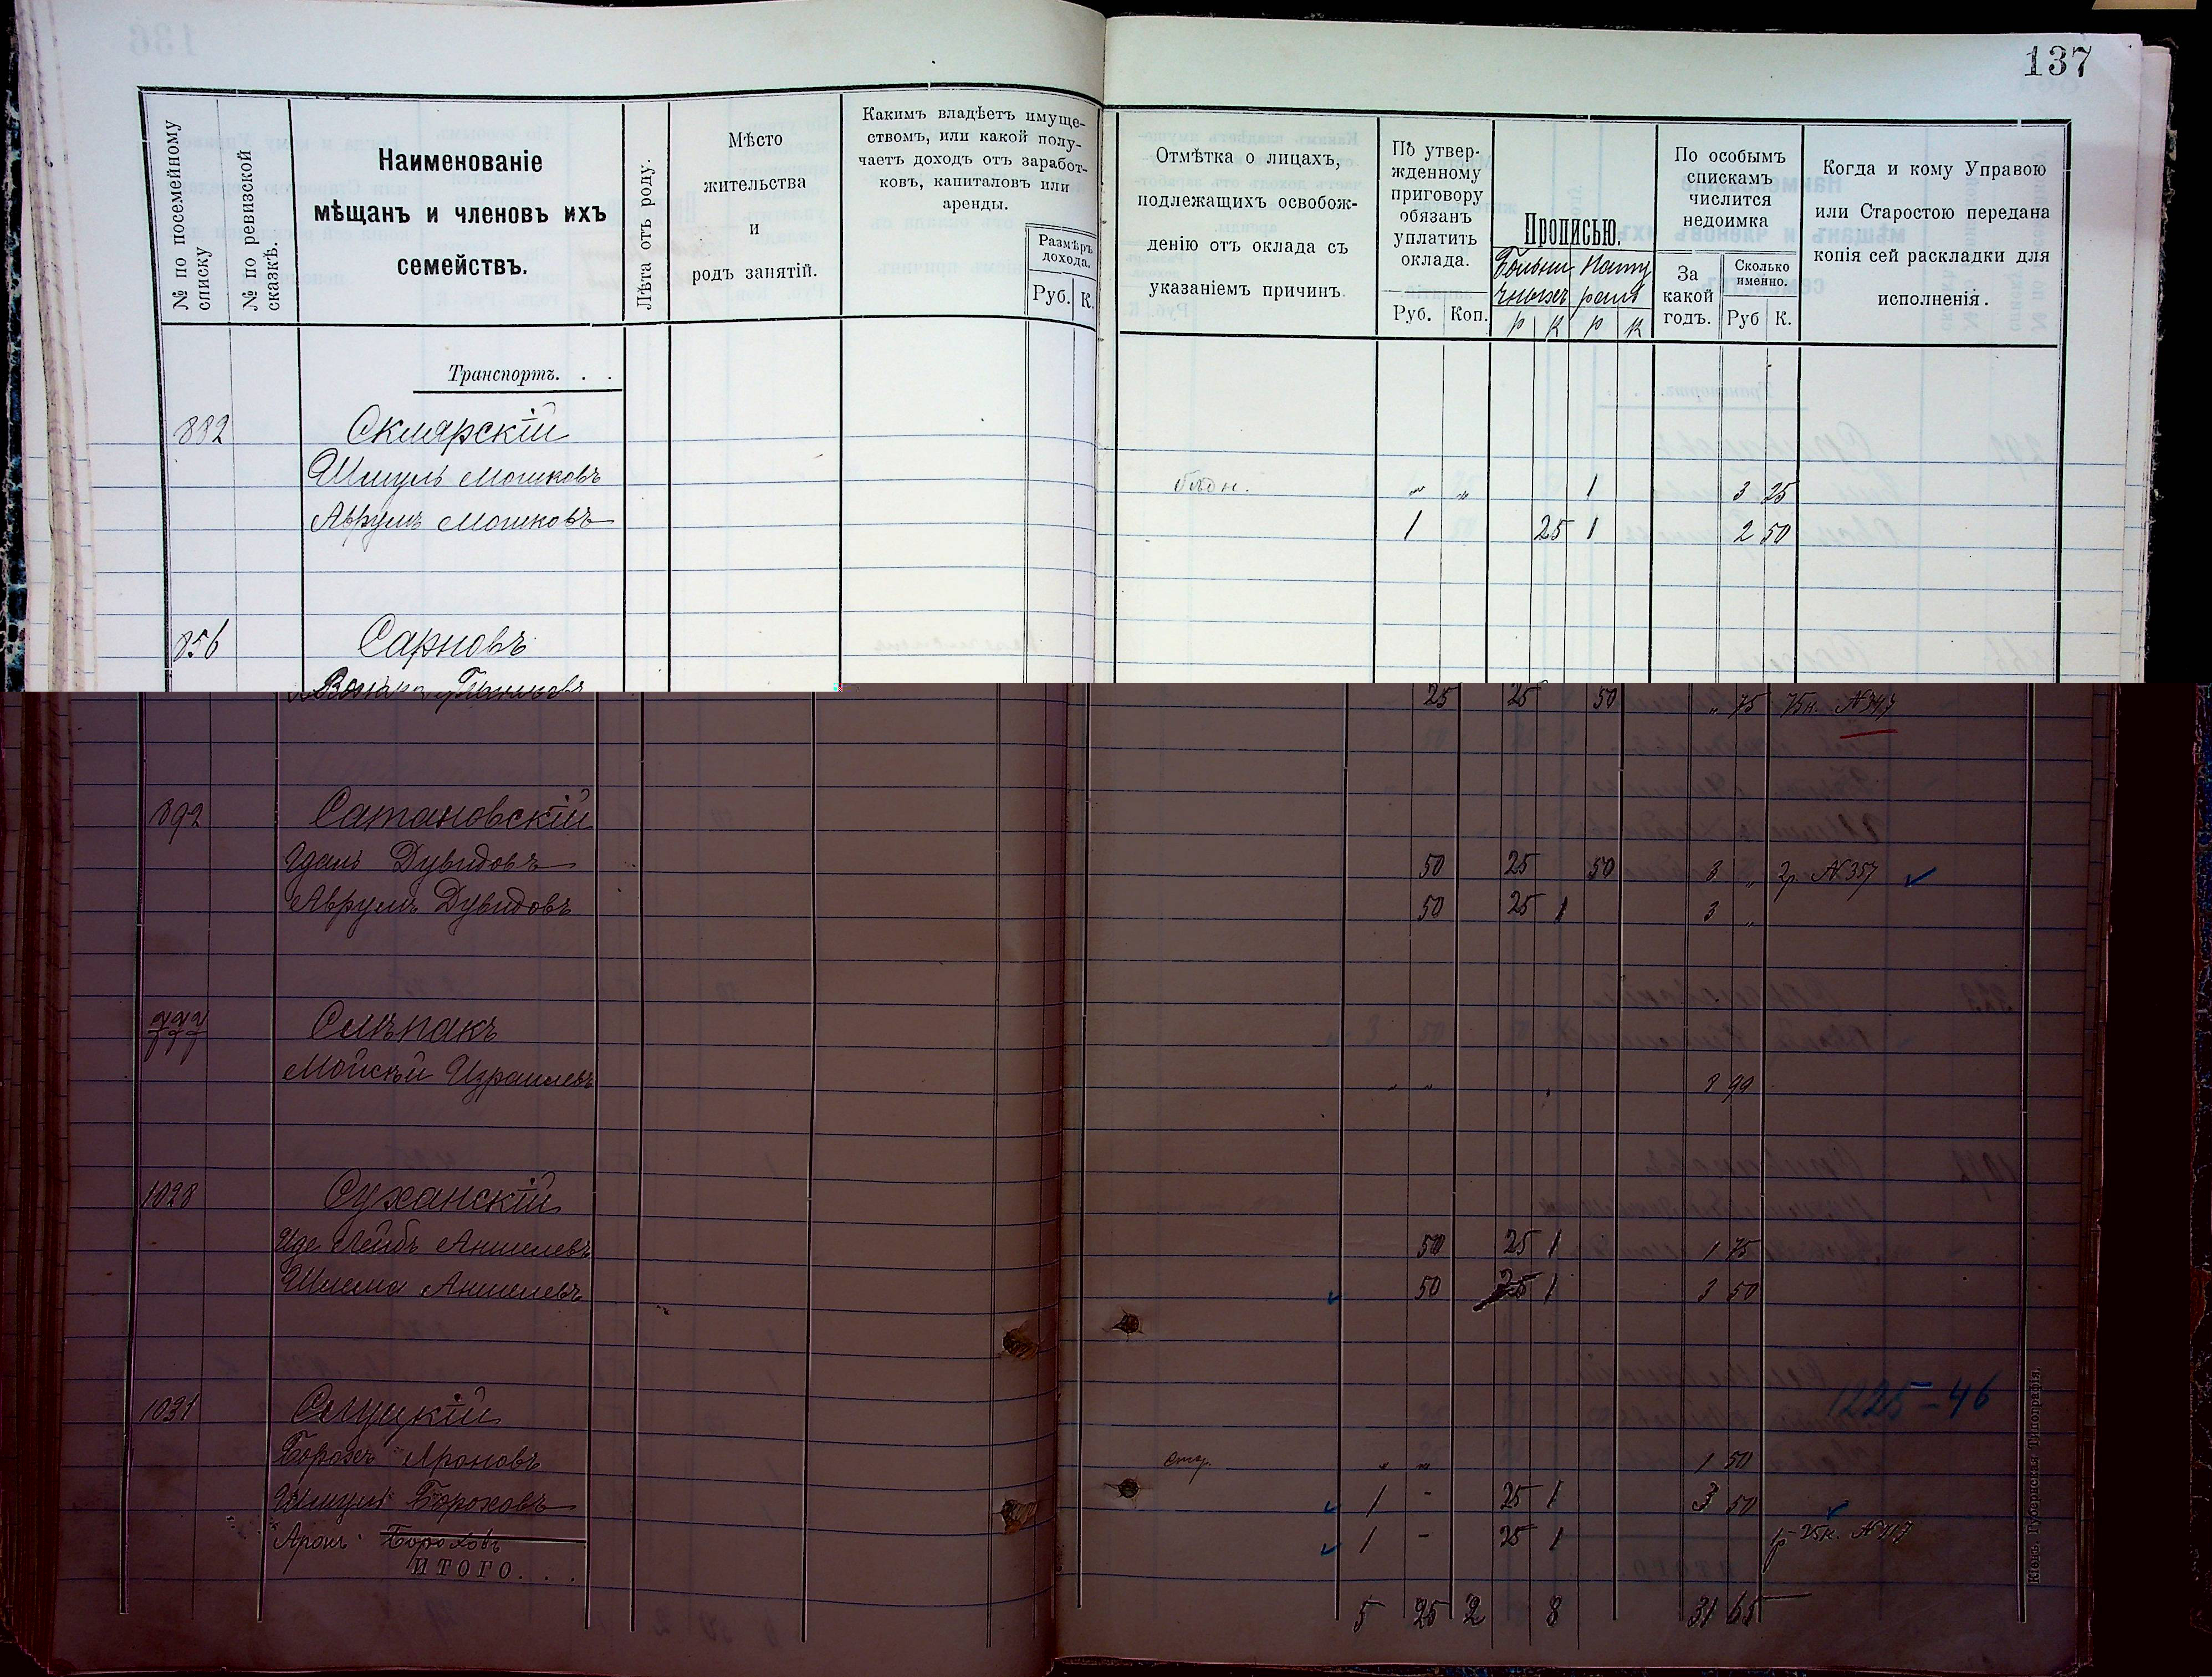 137
№ по посемейному списку
№ по ревизской сказкѣ.
Наименованіе
мѣщанъ и членовъ ихъ
семействъ.
Лѣта отъ роду.
Мѣсто
жительства
и
родъ занятій.
Какимъ владѣетъ имуще-
ствомъ, или какой полу-
чаетъ доходъ отъ заработ-
ковъ, капиталовъ или
аренды.
Размѣръ
дохода.
Руб. К.
Отмѣтка о лицахъ,
подлежащихъ освобож-
денію отъ оклада съ
указаніемъ причинъ.
По утвер-
жденному
приговору
обязанъ
уплатить
оклада.
Руб. Коп.
Прописью.
р к р к
По особымъ
спискамъ
числится
недоимка
За
какой
годъ.
Сколько
именно.
Руб К.
Когда и кому Управою
или Старостою передана
копія сей раскладки для
исполненія.
Транспортъ. . .
882 Склярскій
Шмуль Мошковъ бѣдн. „ „ 1 3 25
Аврумъ Мошковъ 1 25 1 2 50
856 Сарновъ
25 25 50 „ 75 75к.
892 Сатановскій
Идель Дувидовъ 50 25 50 3 „ 2р. №357
Аврумъ Дувидовъ 50 25 1 3 „
777 Слѣпакъ
Мойсѣй Израилевъ „ „ 8 90
1028 Суханскій
Иде Лейбъ Аншелевъ 50 25 1 1 75
Шлема Аншелевъ 50 25 1 3 50
1225-46
1031 Слуцкій
Борохъ Ароновъ стар. „ „ 1 50
Шмуль Бороховъ 1 - 25 1 3 50
Аронъ Бороховъ 1 - 25 1
ИТОГО. . .
5 25 2 8 31 65
Кіевъ. Губернская Типографія.